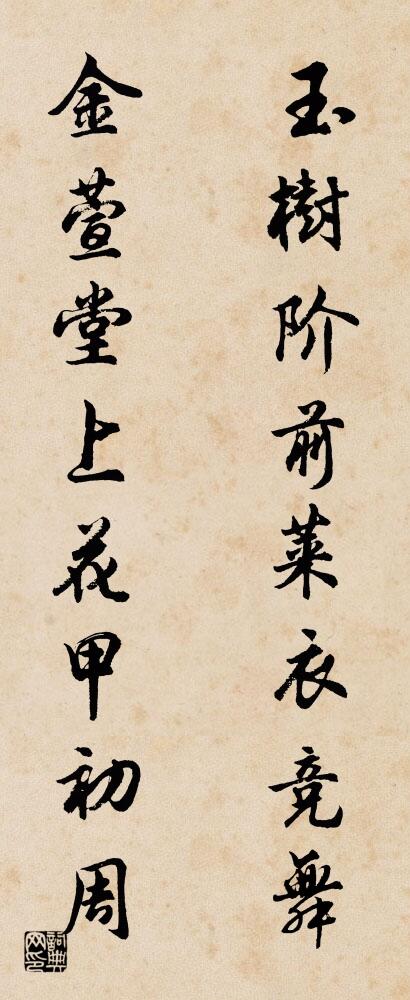 玉樹阶前莱衣竞舞
金萱堂上花甲初周
詞典网印